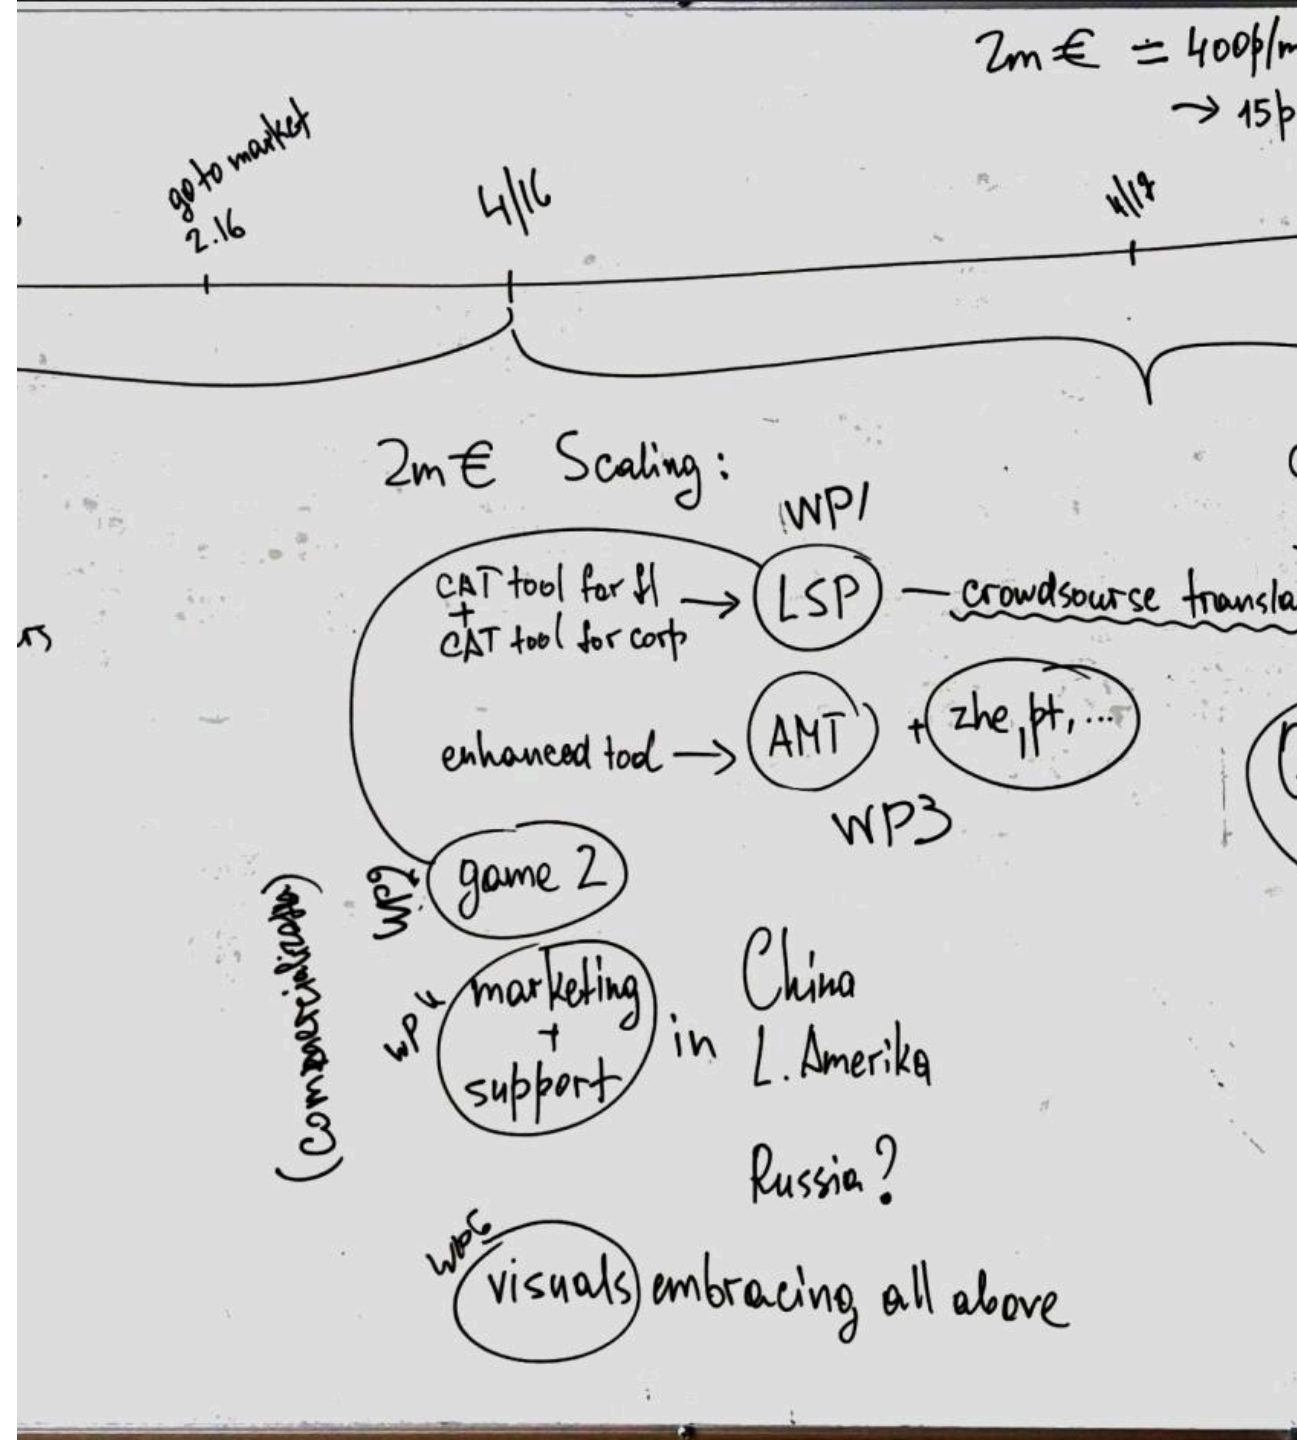 2m€ = 400p/m
→ 15p
go to market
2.16
4/16
4/18
2m€ Scaling:
WP1
CAT tool for fl
+
CAT tool for corp
→ LSP — crowdsourse transla
rs
enhanced tool → AMT + zhe, pt, ...
WP3
WP2
game 2
WP4
marketing
+
support
in
China
L. Amerika
Russia?
visuals embracing all above